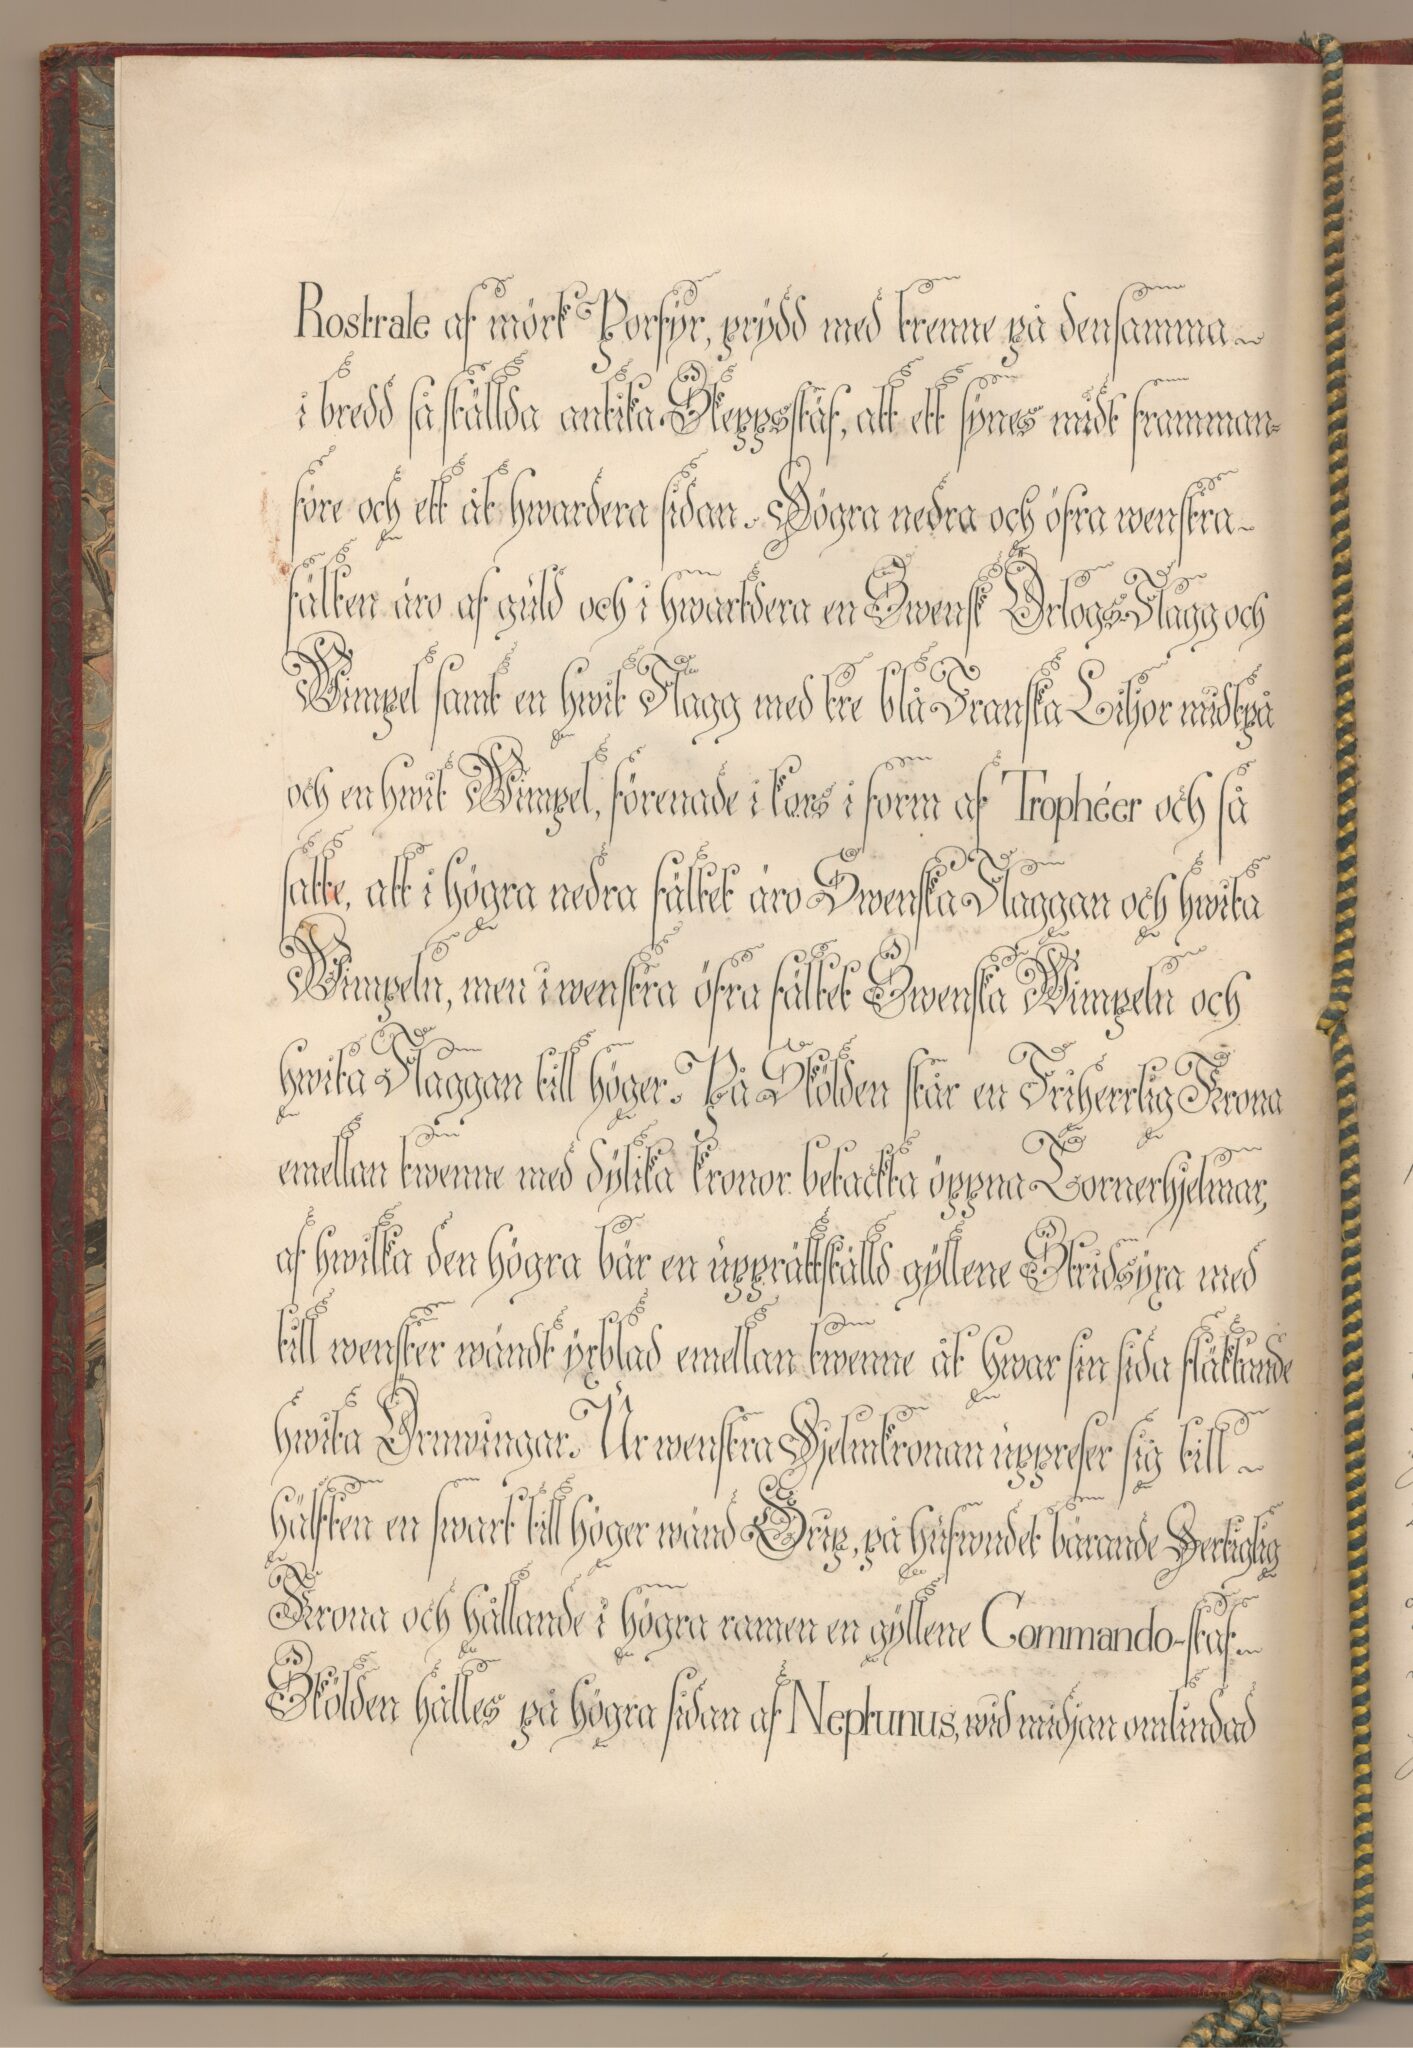 Rostrale af mörk Porfyr, prydd med trenne på densamma
i bredd så ställda antika Skeppsstäf, att ett synes midt framman-
före och ett åt hwardera sidan. Högra nedra och öfra wenstra
fälten äro af guld och i hwartdera en Swensk Örlogs-Flagg och
Wimpel samt en hwit Flagg med tre blå Franska Liljor midtpå
och en hwit Wimpel, förenade i kors i form af Trophéer och så
satte, att i högra nedra fältet äro Swenska Flaggan och hwita
Wimpeln, men i wenstra öfra fältet Swenska Wimpeln och
hwita Flaggan till höger. På Skölden står en Friherrlig Krona
emellan twenne med dylika kronor betäckta öppna Tornerhjelmar,
af hwilka den högra bär en upprättställd gyllene Stridsyxa med
till wenster wändt yxblad emellan twenne åt hwar sin sida fläktande
hwita Örnwingar. Ur wenstra Hjelmkronan uppreser sig till
hälften en swart till höger wänd Grip, på hufwudet bärande Hertiglig
Krona och hållande i högra ramen en gyllene Commando-staf.
Skölden hålles på högra sidan af Neptunus, wid midjan omlindad